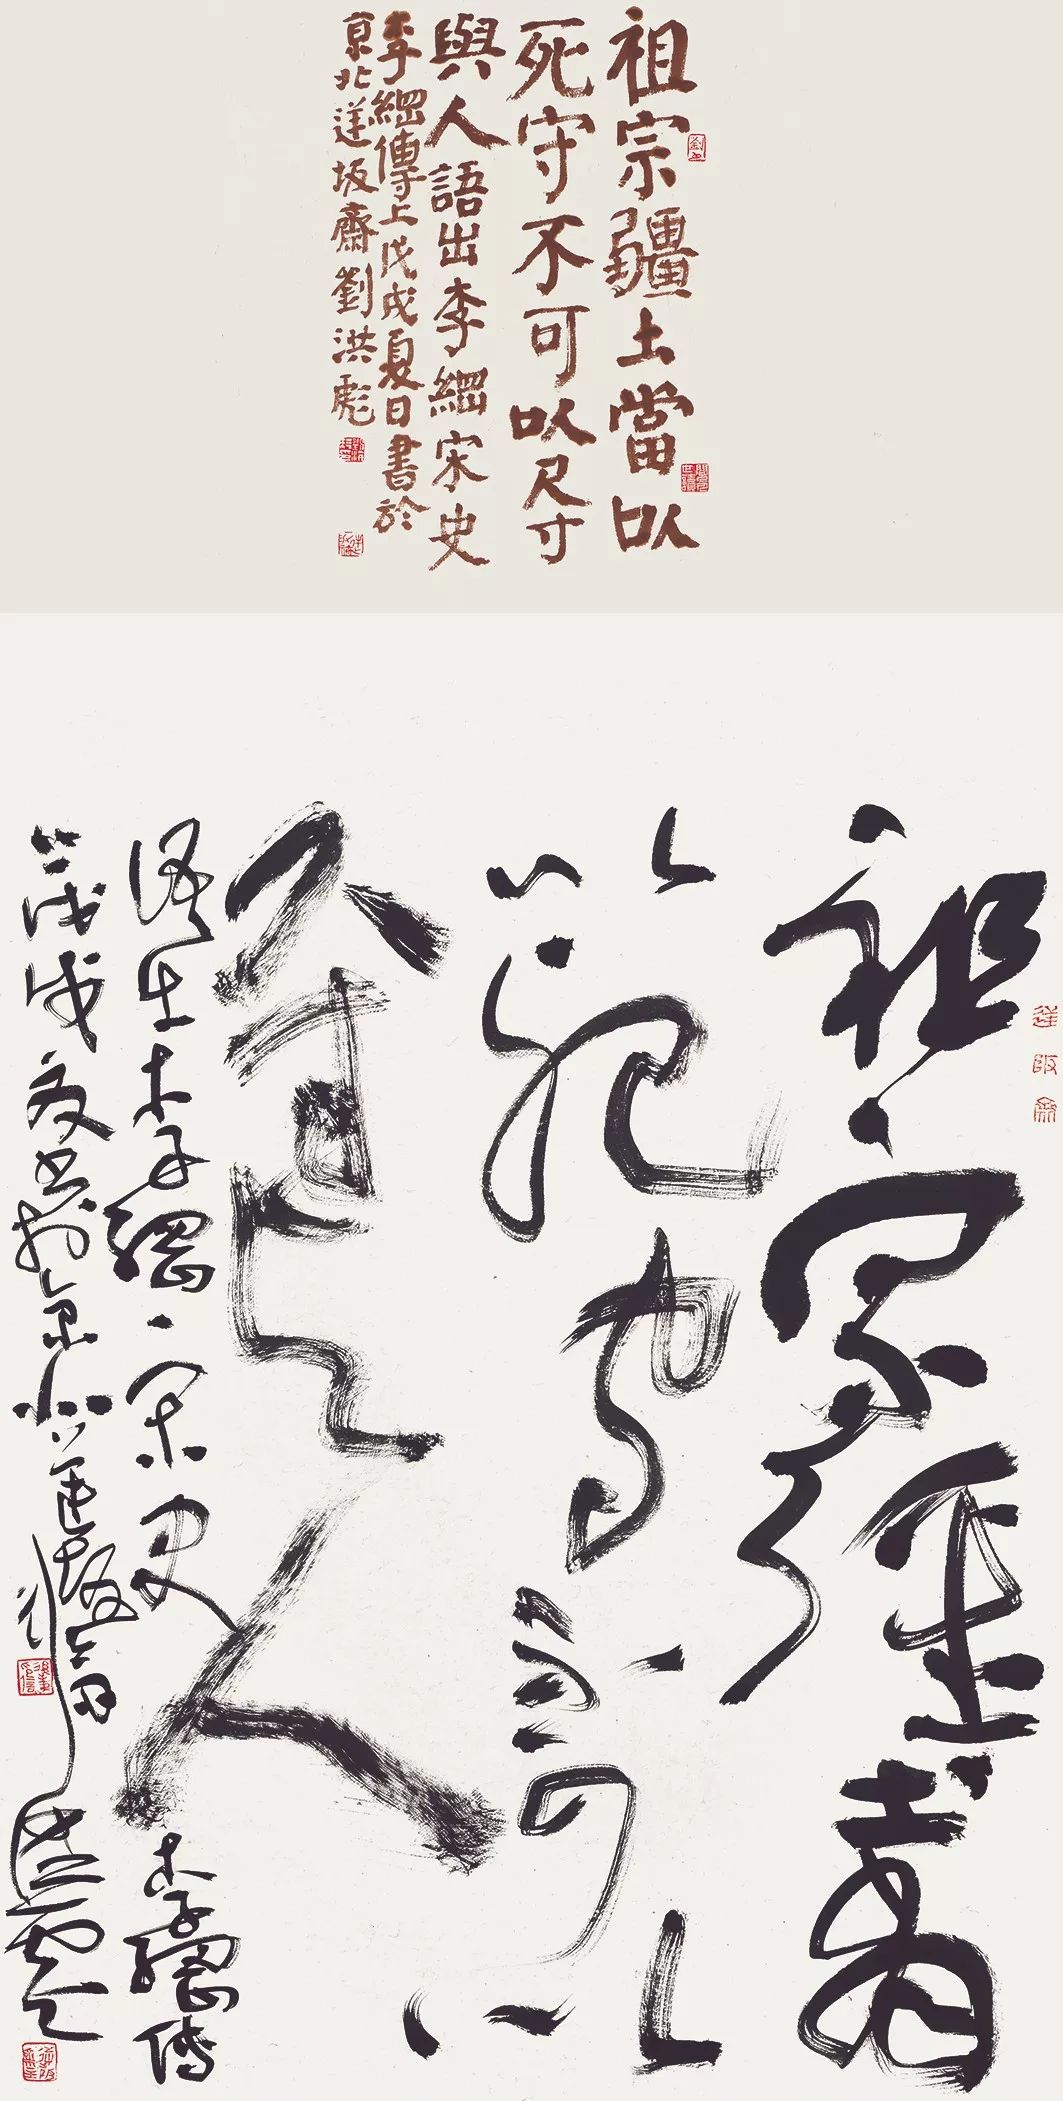 祖宗疆土當以
死守不可以尺寸
與人語出李綱宋史
李綱傳上戊戌夏日書於
京北達坂齋劉洪彪
祖宗疆土當
以死守不可以
尺寸與人
語出李綱宋史李綱傳
上戊戌夏書於京北達坂齋劉洪彪